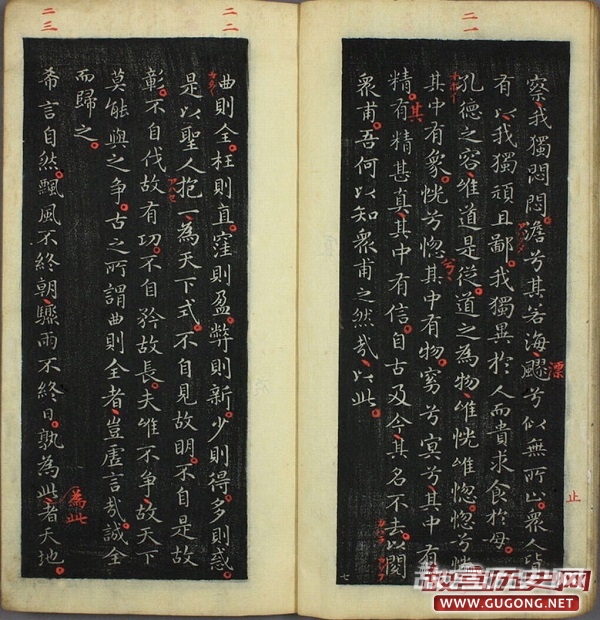 二一
察我獨悶悶澹兮其若海飂兮似無所止衆人皆
漂
止
有以我獨頑且鄙我獨異於人而貴求食於母
孔德之容唯道是從道之為物唯恍唯惚惚兮恍
兮
其中有象恍兮惚其中有物窈兮冥兮其中有
其
精有精甚真其中有信自古及今其名不去以閱
衆甫吾何以知衆甫之然哉以此
七
二二
曲則全枉則直窪則盈弊則新少則得多則惑
是以聖人抱一為天下式不自見故明不自是故
彰不自伐故有功不自矜故長夫唯不争故天下
莫能與之争古之所謂曲則全者豈虛言哉誠全
而歸之
二三
希言自然飄風不終朝驟雨不終日孰為此者天地
為此
故宫历史网
WWW.GUGONG.NET